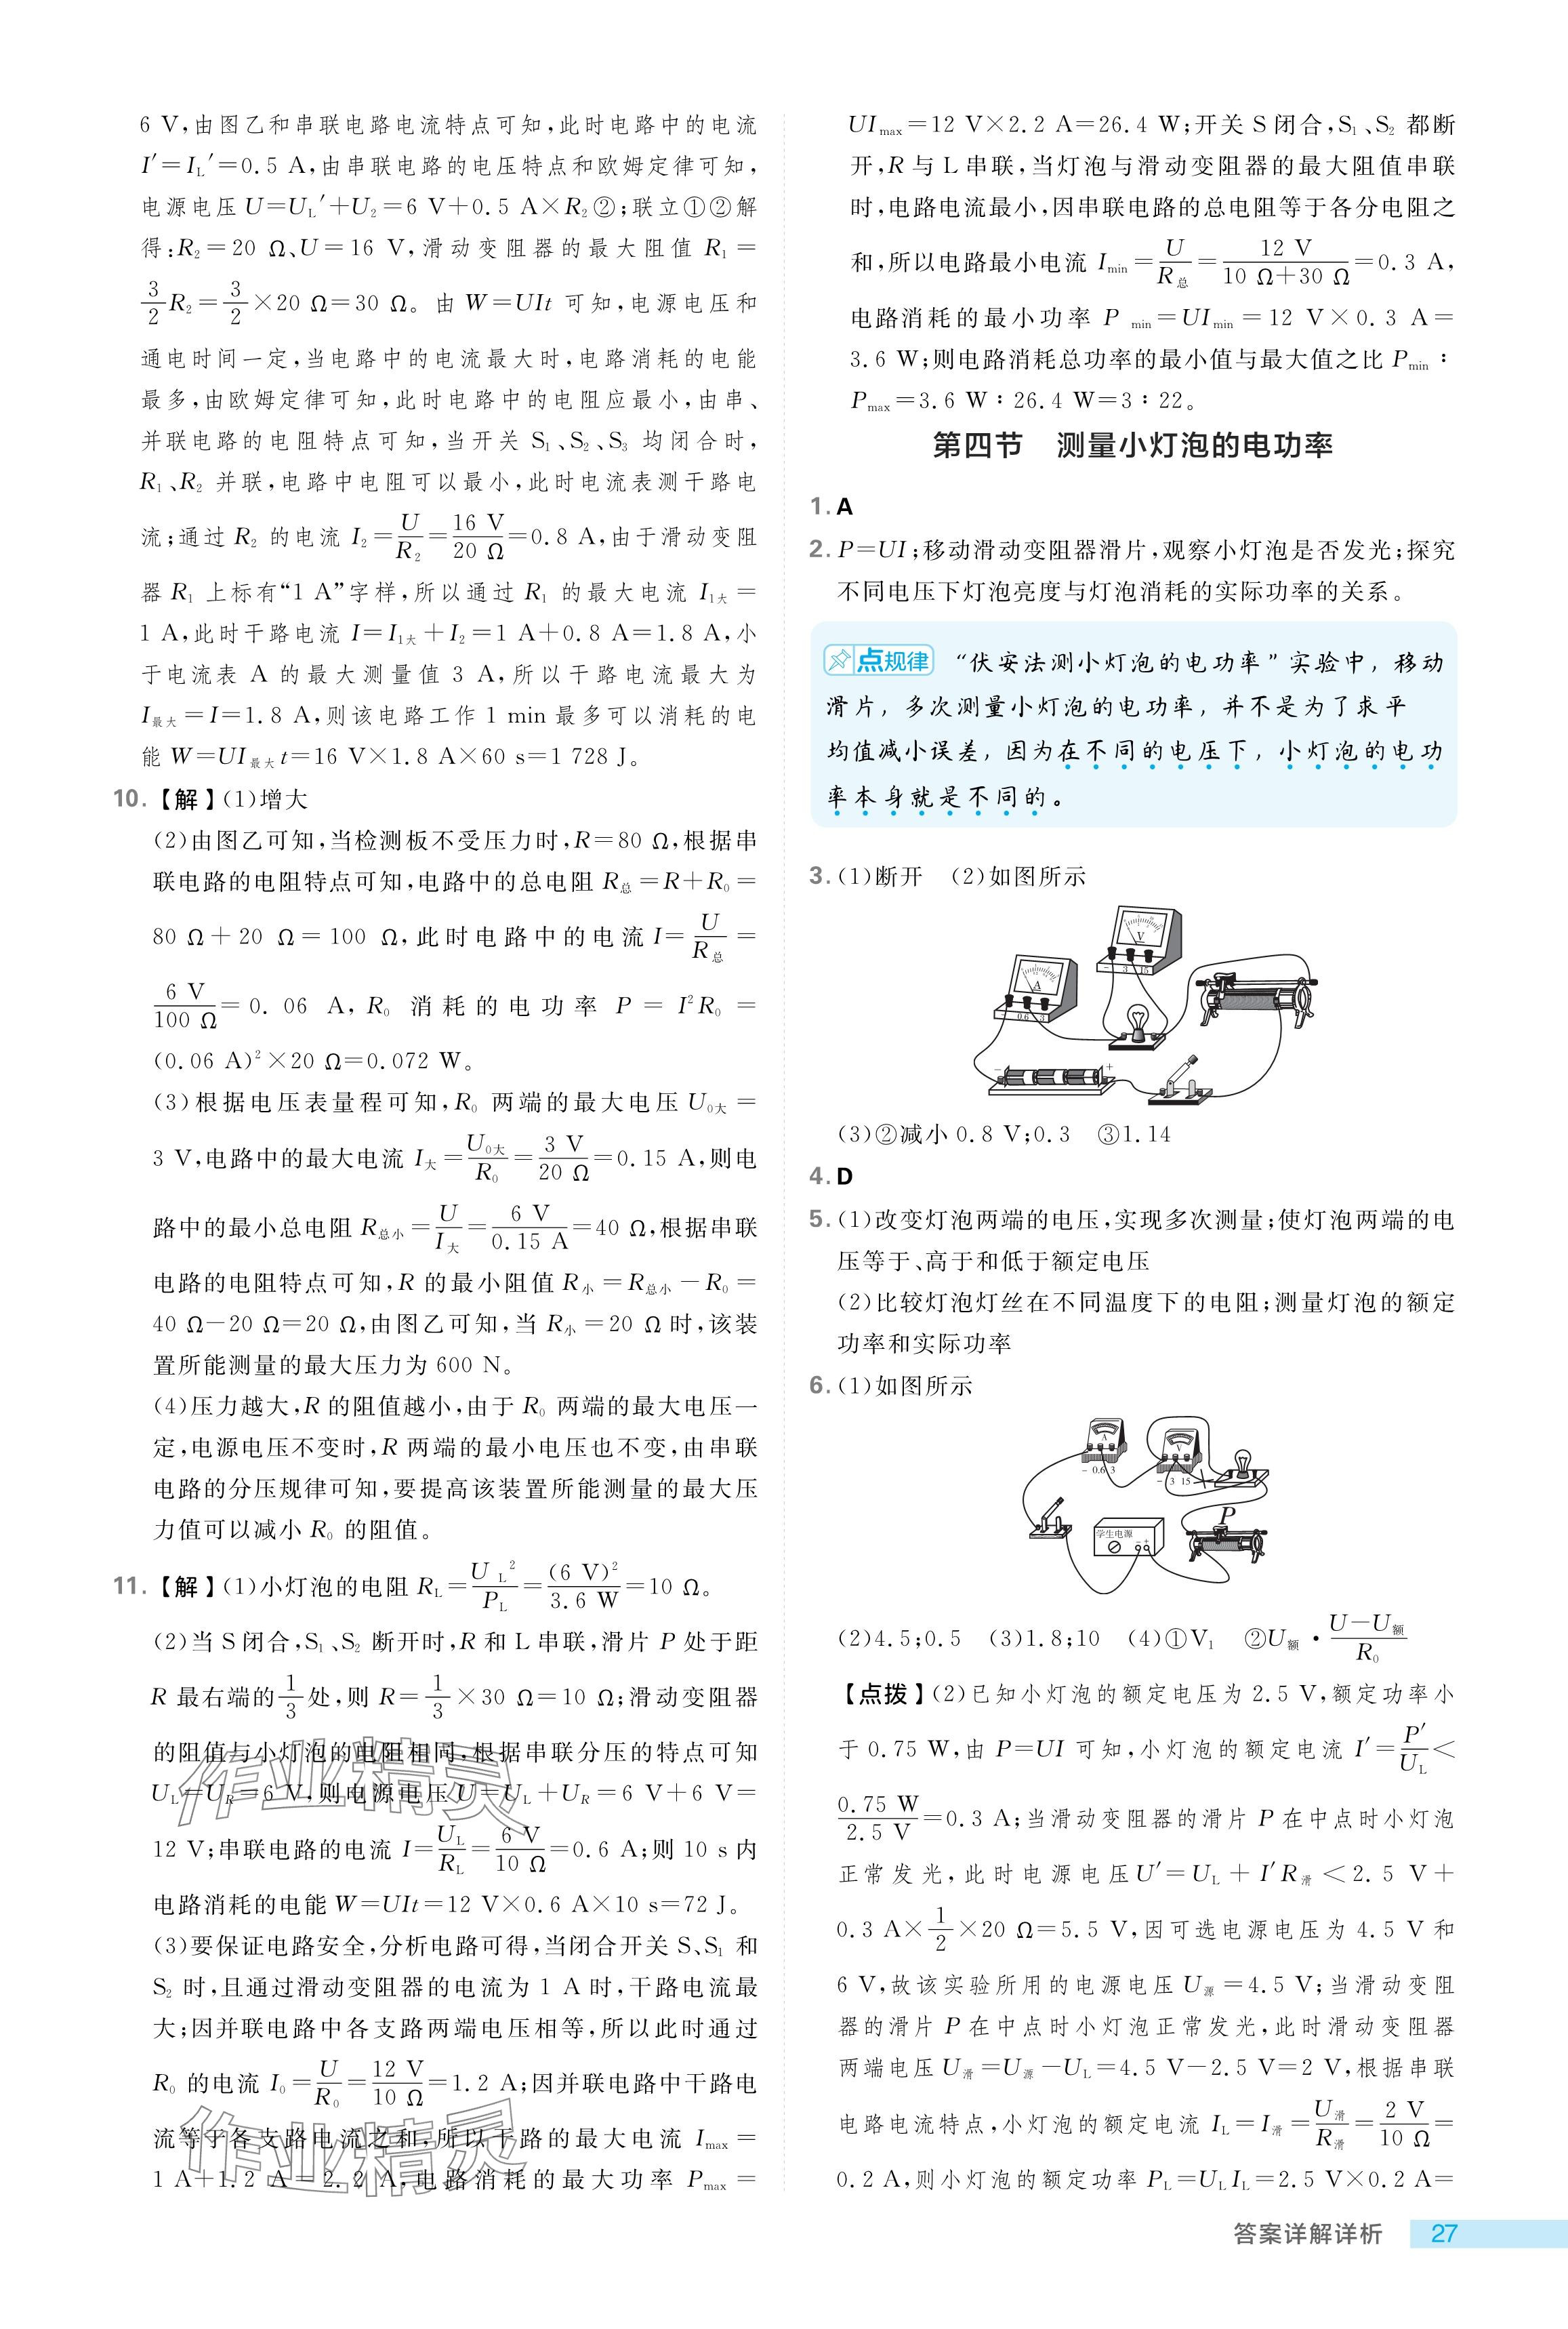 6 V,由图乙和串联电路电流特点可知,此时电路中的电流
I′=I_L′=0.5 A,由串联电路的电压特点和欧姆定律可知,
电源电压 U=U_L′+U₂=6 V+0.5 A×R₂②;联立①②解
得:R₂=20 Ω、U=16 V,滑动变阻器的最大阻值 R₁=
3/2 R₂=3/2×20 Ω=30 Ω。由 W=UIt 可知,电源电压和
通电时间一定,当电路中的电流最大时,电路消耗的电能
最多,由欧姆定律可知,此时电路中的电阻应最小,由串、
并联电路的电阻特点可知,当开关 S₁、S₂、S₃ 均闭合时,
R₁、R₂ 并联,电路中电阻可以最小,此时电流表测干路电
流;通过 R₂ 的电流 I₂=U/R₂=16 V/20 Ω=0.8 A,由于滑动变阻
器 R₁ 上标有“1 A”字样,所以通过 R₁ 的最大电流 I₁大=
1 A,此时干路电流 I=I₁大+I₂=1 A+0.8 A=1.8 A,小
于电流表 A 的最大测量值 3 A,所以干路电流最大为
I最大=I=1.8 A,则该电路工作 1 min 最多可以消耗的电
能 W=UI最大t=16 V×1.8 A×60 s=1 728 J。
10.【解】(1)增大
(2)由图乙可知,当检测板不受压力时,R=80 Ω,根据串
联电路的电阻特点可知,电路中的总电阻 R总=R+R₀=
80 Ω+20 Ω=100 Ω,此时电路中的电流 I=U/R总=
6 V/100 Ω=0.06 A,R₀ 消耗的电功率 P=I²R₀=
(0.06 A)²×20 Ω=0.072 W。
(3)根据电压表量程可知,R₀ 两端的最大电压 U₀大=
3 V,电路中的最大电流 I大=U₀大/R₀=3 V/20 Ω=0.15 A,则电
路中的最小总电阻 R总小=U/I大=6 V/0.15 A=40 Ω,根据串联
电路的电阻特点可知,R 的最小阻值 R小=R总小-R₀=
40 Ω-20 Ω=20 Ω,由图乙可知,当 R小=20 Ω 时,该装
置所能测量的最大压力为 600 N。
(4)压力越大,R 的阻值越小,由于 R₀ 两端的最大电压一
定,电源电压不变时,R 两端的最小电压也不变,由串联
电路的分压规律可知,要提高该装置所能测量的最大压
力值可以减小 R₀ 的阻值。
11.【解】(1)小灯泡的电阻 R_L=U_L²/P_L=(6 V)²/3.6 W=10 Ω。
(2)当 S 闭合,S₁、S₂ 断开时,R 和 L 串联,滑片 P 处于距
R 最右端的1/3处,则 R=1/3×30 Ω=10 Ω;滑动变阻器
的阻值与小灯泡的电阻相同,根据串联分压的特点可知
U_L=U_R=6 V,则电源电压 U=U_L+U_R=6 V+6 V=
12 V;串联电路的电流 I=U_L/R_L=6 V/10 Ω=0.6 A;则 10 s 内
电路消耗的电能 W=UIt=12 V×0.6 A×10 s=72 J。
(3)要保证电路安全,分析电路可得,当闭合开关 S、S₁ 和
S₂ 时,且通过滑动变阻器的电流为 1 A 时,干路电流最
大;因并联电路中各支路两端电压相等,所以此时通过
R₀ 的电流 I₀=U/R₀=12 V/10 Ω=1.2 A;因并联电路中干路电
流等于各支路电流之和,所以干路的最大电流 Imax=
1 A+1.2 A=2.2 A,电路消耗的最大功率 Pmax=
UImax=12 V×2.2 A=26.4 W;开关 S 闭合,S₁、S₂ 都断
开,R 与 L 串联,当灯泡与滑动变阻器的最大阻值串联
时,电路电流最小,因串联电路的总电阻等于各分电阻之
和,所以电路最小电流 Imin=U/R总=12 V/(10 Ω+30 Ω)=0.3 A,
电路消耗的最小功率 P min=UImin=12 V×0.3 A=
3.6 W;则电路消耗总功率的最小值与最大值之比 Pmin∶
Pmax=3.6 W∶26.4 W=3∶22。
第四节 测量小灯泡的电功率
1. A
2. P=UI;移动滑动变阻器滑片,观察小灯泡是否发光;探究
不同电压下灯泡亮度与灯泡消耗的实际功率的关系。
点规律 “伏安法测小灯泡的电功率”实验中,移动
滑片,多次测量小灯泡的电功率,并不是为了求平
均值减小误差,因为在不同的电压下,小灯泡的电功
率本身就是不同的。
3.(1)断开 (2)如图所示
V
- 3 15
A
- 0.6 3
- +
(3)②减小 0.8 V;0.3 ③1.14
4. D
5.(1)改变灯泡两端的电压,实现多次测量;使灯泡两端的电
压等于、高于和低于额定电压
(2)比较灯泡灯丝在不同温度下的电阻;测量灯泡的额定
功率和实际功率
6.(1)如图所示
A
- 0.6 3
V
- 3 15
P
学生电源
- +
(2)4.5;0.5 (3)1.8;10 (4)①V₁ ②U额·(U-U额)/R₀
【点拨】(2)已知小灯泡的额定电压为 2.5 V,额定功率小
于 0.75 W,由 P=UI 可知,小灯泡的额定电流 I′=P′/U_L<
0.75 W/2.5 V=0.3 A;当滑动变阻器的滑片 P 在中点时小灯泡
正常发光,此时电源电压U′=U_L+I′R滑<2.5 V+
0.3 A×1/2×20 Ω=5.5 V,因可选电源电压为 4.5 V 和
6 V,故该实验所用的电源电压 U源=4.5 V;当滑动变阻
器的滑片 P 在中点时小灯泡正常发光,此时滑动变阻器
两端电压 U滑=U源-U_L=4.5 V-2.5 V=2 V,根据串联
电路电流特点,小灯泡的额定电流 I_L=I滑=U滑/R滑=2 V/10 Ω=
0.2 A,则小灯泡的额定功率 P_L=U_L I_L=2.5 V×0.2 A=
作业精灵
作业精灵
答案详解详析 27